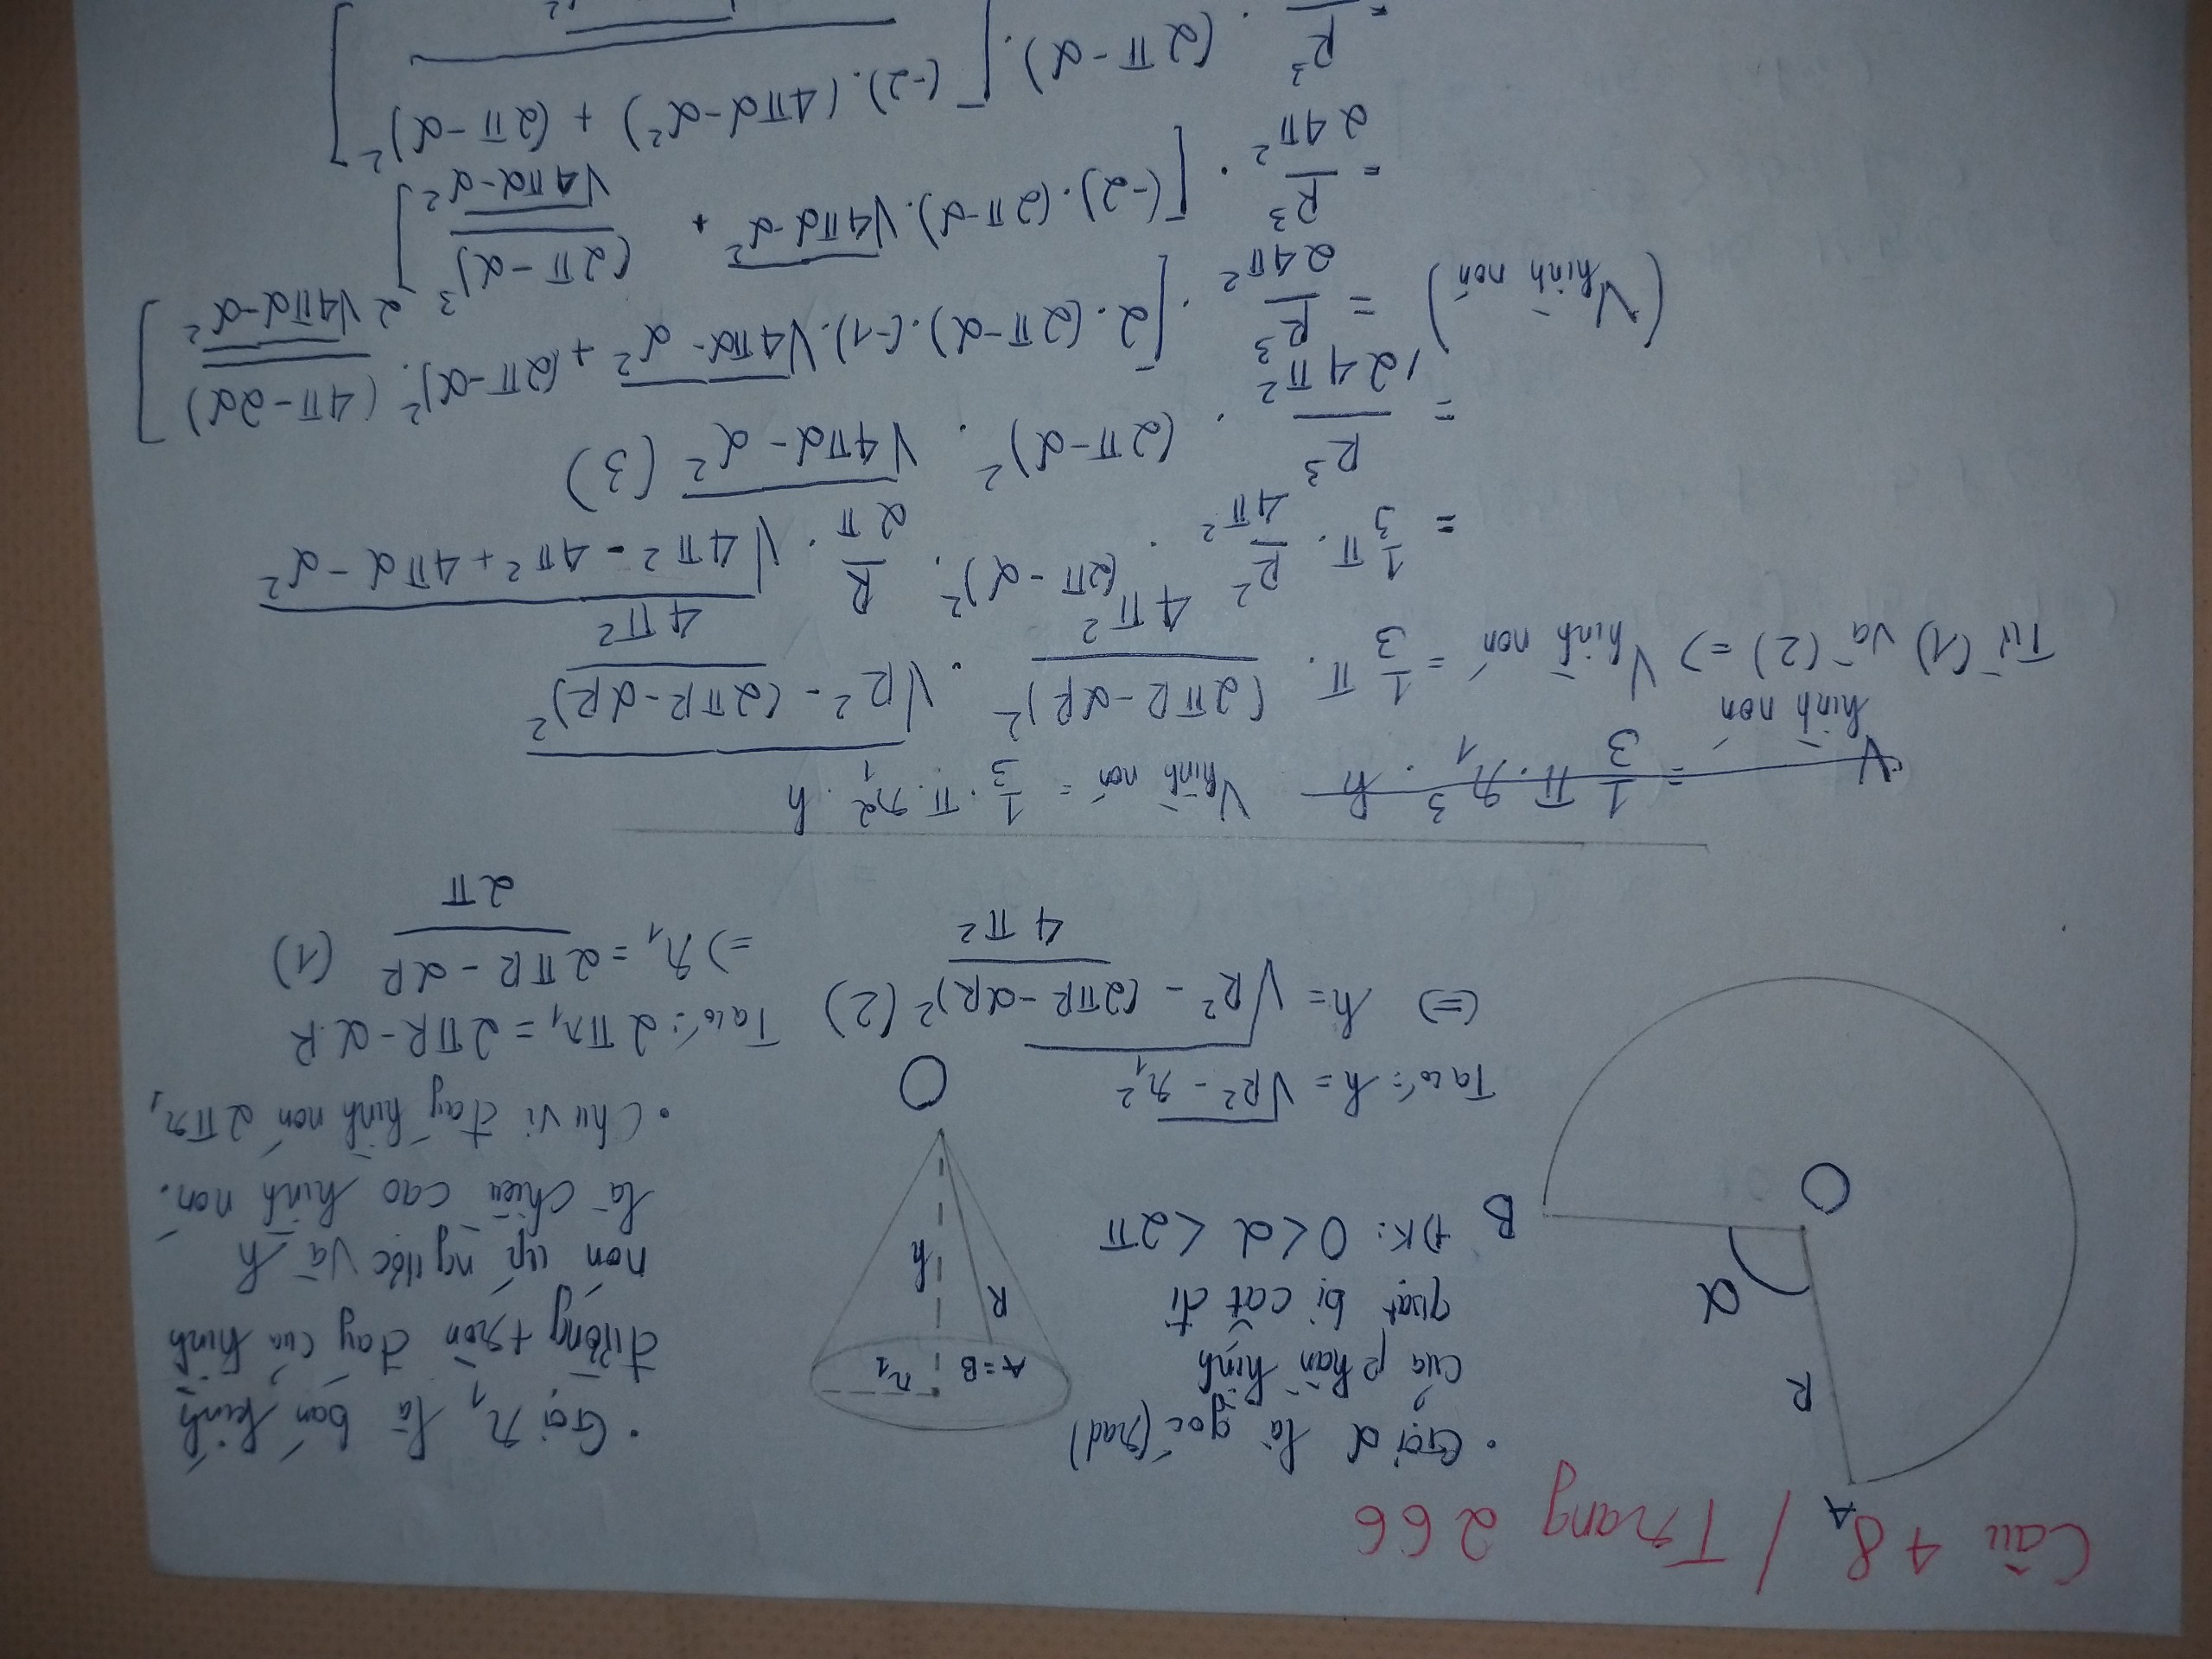 Câu 48 / Trang 266
A
R
α
O
B
• Gọi α là góc (rad)
của phần hình
quạt bị cắt đi
ĐK: 0 < α < 2π
A≡B
r₁
R
h
O
• Gọi r₁ là bán kính
đường tròn đáy của hình
nón úp ngược và h
là chiều cao hình nón.
• Chu vi đáy hình nón 2πr₁
Ta có: 2πr₁ = 2πR - α.R
=> r₁ = (2πR - αR)/(2π) (1)
Ta có: h = √(R² - r₁²)
(=) h = √(R² - (2πR - αR)²/(4π²)) (2)
V hình nón = 1/3 π. r₁³ . h
V hình nón = 1/3 . π. r₁² . h
Từ (1) và (2) => V hình nón = 1/3 π. (2πR - αR)²/(4π²) . √(R² - (2πR - αR)²/(4π²))
= 1/3 π. R²/(4π²) . (2π - α)² . R/(2π) . √(4π² - 4π² + 4πα - α²)
= R³/(24π²) . (2π - α)² . √(4πα - α²) (3)
(V hình nón)' = R³/(24π²) . [2.(2π - α).(-1).√(4πα - α²) + (2π - α)². (4π - 2α)/(2√(4πα - α²))]
= R³/(24π²) . [(-2).(2π - α).√(4πα - α²) + (2π - α)³/√(4πα - α²)]
= R³ . (2π - α).[(-2).(4πα - α²) + (2π - α)²]